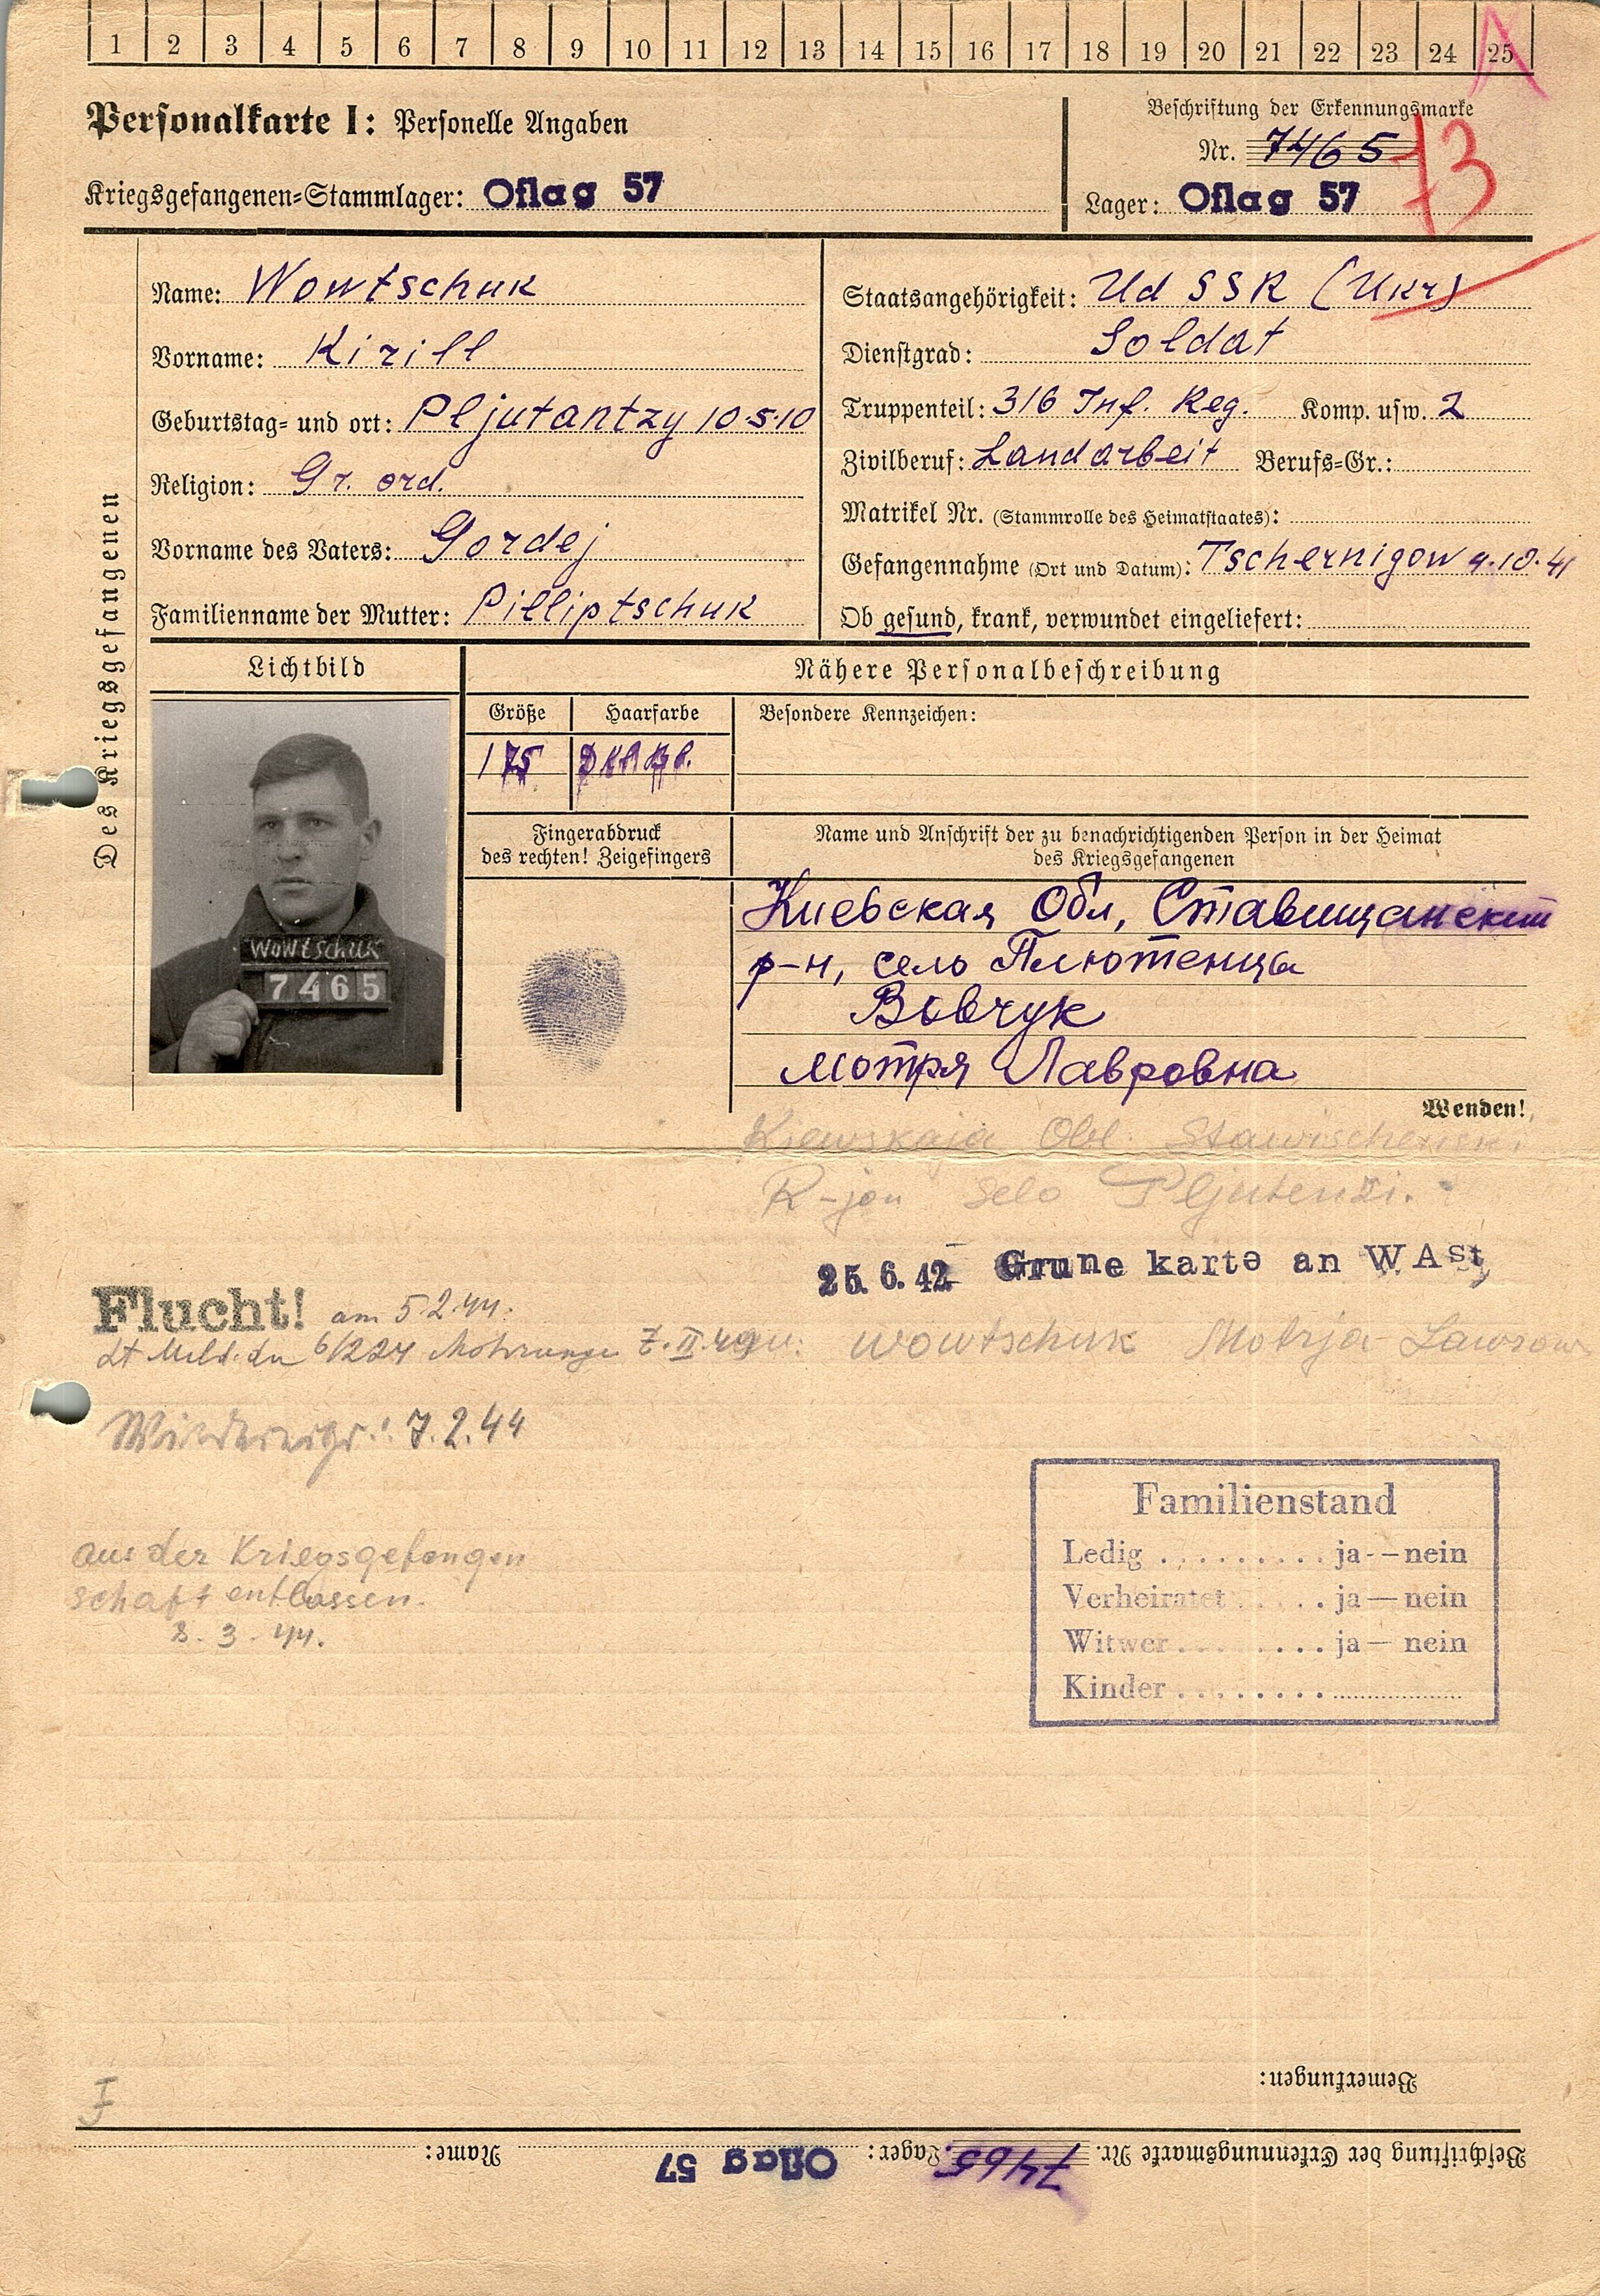 1 2 3 4 5 6 7 8 9 10 11 12 13 14 15 16 17 18 19 20 21 22 23 24 25
Personalkarte I: Personelle Angaben
Beschriftung der Erkennungsmarke
Nr. 7465
73
Kriegsgefangenen-Stammlager: Oflag 57
Lager: Oflag 57
Des Kriegsgefangenen
Name: Wowtschuk
Vorname: Kirill
Geburtstag- und ort: Pljutantzy 10.5.10
Religion: Gr. ord.
Vorname des Vaters: Gordej
Familienname der Mutter: Pilliptschuk
Staatsangehörigkeit: Ud SSR (Ukr)
Dienstgrad: Soldat
Truppenteil: 316 Inf. Reg. Komp. usw. 2
Zivilberuf: Landarbeit Berufs-Gr.:
Matrikel Nr. (Stammrolle des Heimatstaates):
Gefangennahme (Ort und Datum): Tschernigow 9.10.41
Ob gesund, krank, verwundet eingeliefert:
Lichtbild
Nähere Personalbeschreibung
Größe Haarfarbe Besondere Kennzeichen:
175
WOWtSCHUK
7465
Fingerabdruck
des rechten! Zeigefingers
Name und Anschrift der zu benachrichtigenden Person in der Heimat
des Kriegsgefangenen
Киевская Обл, Ставищанский
р-н, село Плютенцы
Вовчук
Мотря Лавровна
Wenden!
Kiewskaja Obl. Stawischenski
R-jon Selo Pljutenzi.
25.6.42 Grune karte an WASt
Flucht! am 5.2.44.
lt Meld. du 6/224 Mohrungen
Wowtschuk Motrja Lawrow
7.2.44
aus der Kriegsgefangen
schaft entlassen.
8.3.44.
Familienstand
Ledig ......... ja--nein
Verheiratet ..... ja—nein
Witwer ........ ja—nein
Kinder ........
Bemerkungen:
F
Beschriftung der Erkennungsmarke Nr. 7465 Lager: Oflag 57 Name: